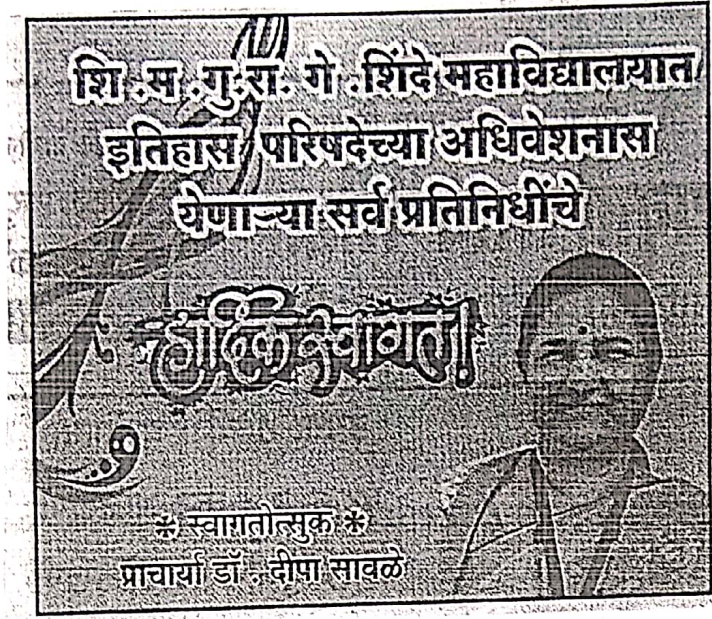 शि .म .गु.रा. गे .शिंदे महाविद्यालयात
इतिहास परिषदेच्या अधिवेशनास
येणाऱ्या सर्व प्रतिनिधींचे
हार्दिक स्वागत!
* स्वागतोत्सुक *
प्राचार्या डॉ . दीपा सावळे